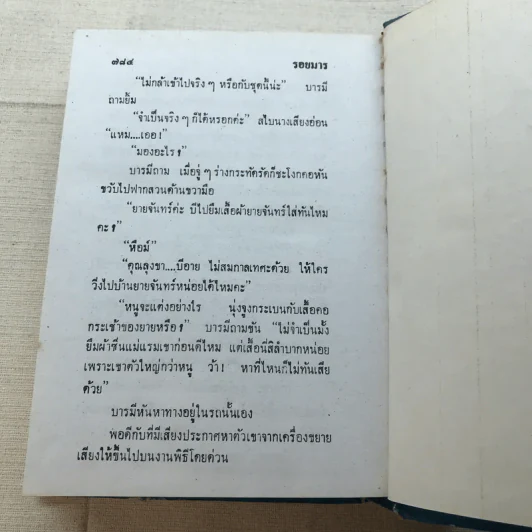 ๗๘๔ รอยมาร
“ไม่กล้าเข้าไปจริง ๆ หรือกับชุดนี้น่ะ” บารมี
ถามยิ้ม
“จำเป็นจริง ๆ ก็ได้หรอกค่ะ” สไบนางเสียงอ่อน
“แหม....เออ !
“มองอะไร ?
บารมีถาม เมื่อจู่ ๆ ร่างกระทัดรัดก็ชะโงกคอหัน
ขวับไปฟากสวนด้านขวามือ
“ยายจันทร์ค่ะ บีไปยืมเสื้อผ้ายายจันทร์ใส่ทันไหม
คะ ?
“หือม์”
“คุณลุงขา....บีอาย ไม่สมกาลเทศะด้วย ให้ใคร
วิ่งไปบ้านยายจันทร์หน่อยได้ไหมคะ”
“หนูจะแต่งอย่างไร นุ่งจูงกระเบนกับเสื้อคอ
กระเช้าของยายหรือ ? ” บารมีถามขัน “ไม่จำเป็นมั้ง
ยืมผ้าซิ่นแม่แรมเขาก่อนดีไหม แต่เสื้อนี่สิลำบากหน่อย
เพราะเขาตัวใหญ่กว่าหนู ว้า ! หาที่ไหนก็ไม่ทันเสีย
ด้วย”
บารมีหันหาทางอยู่ในรถนั้นเอง
พอดีกับที่มีเสียงประกาศหาตัวเขาจากเครื่องขยาย
เสียงให้ขึ้นไปบนงานพิธีโดยด่วน